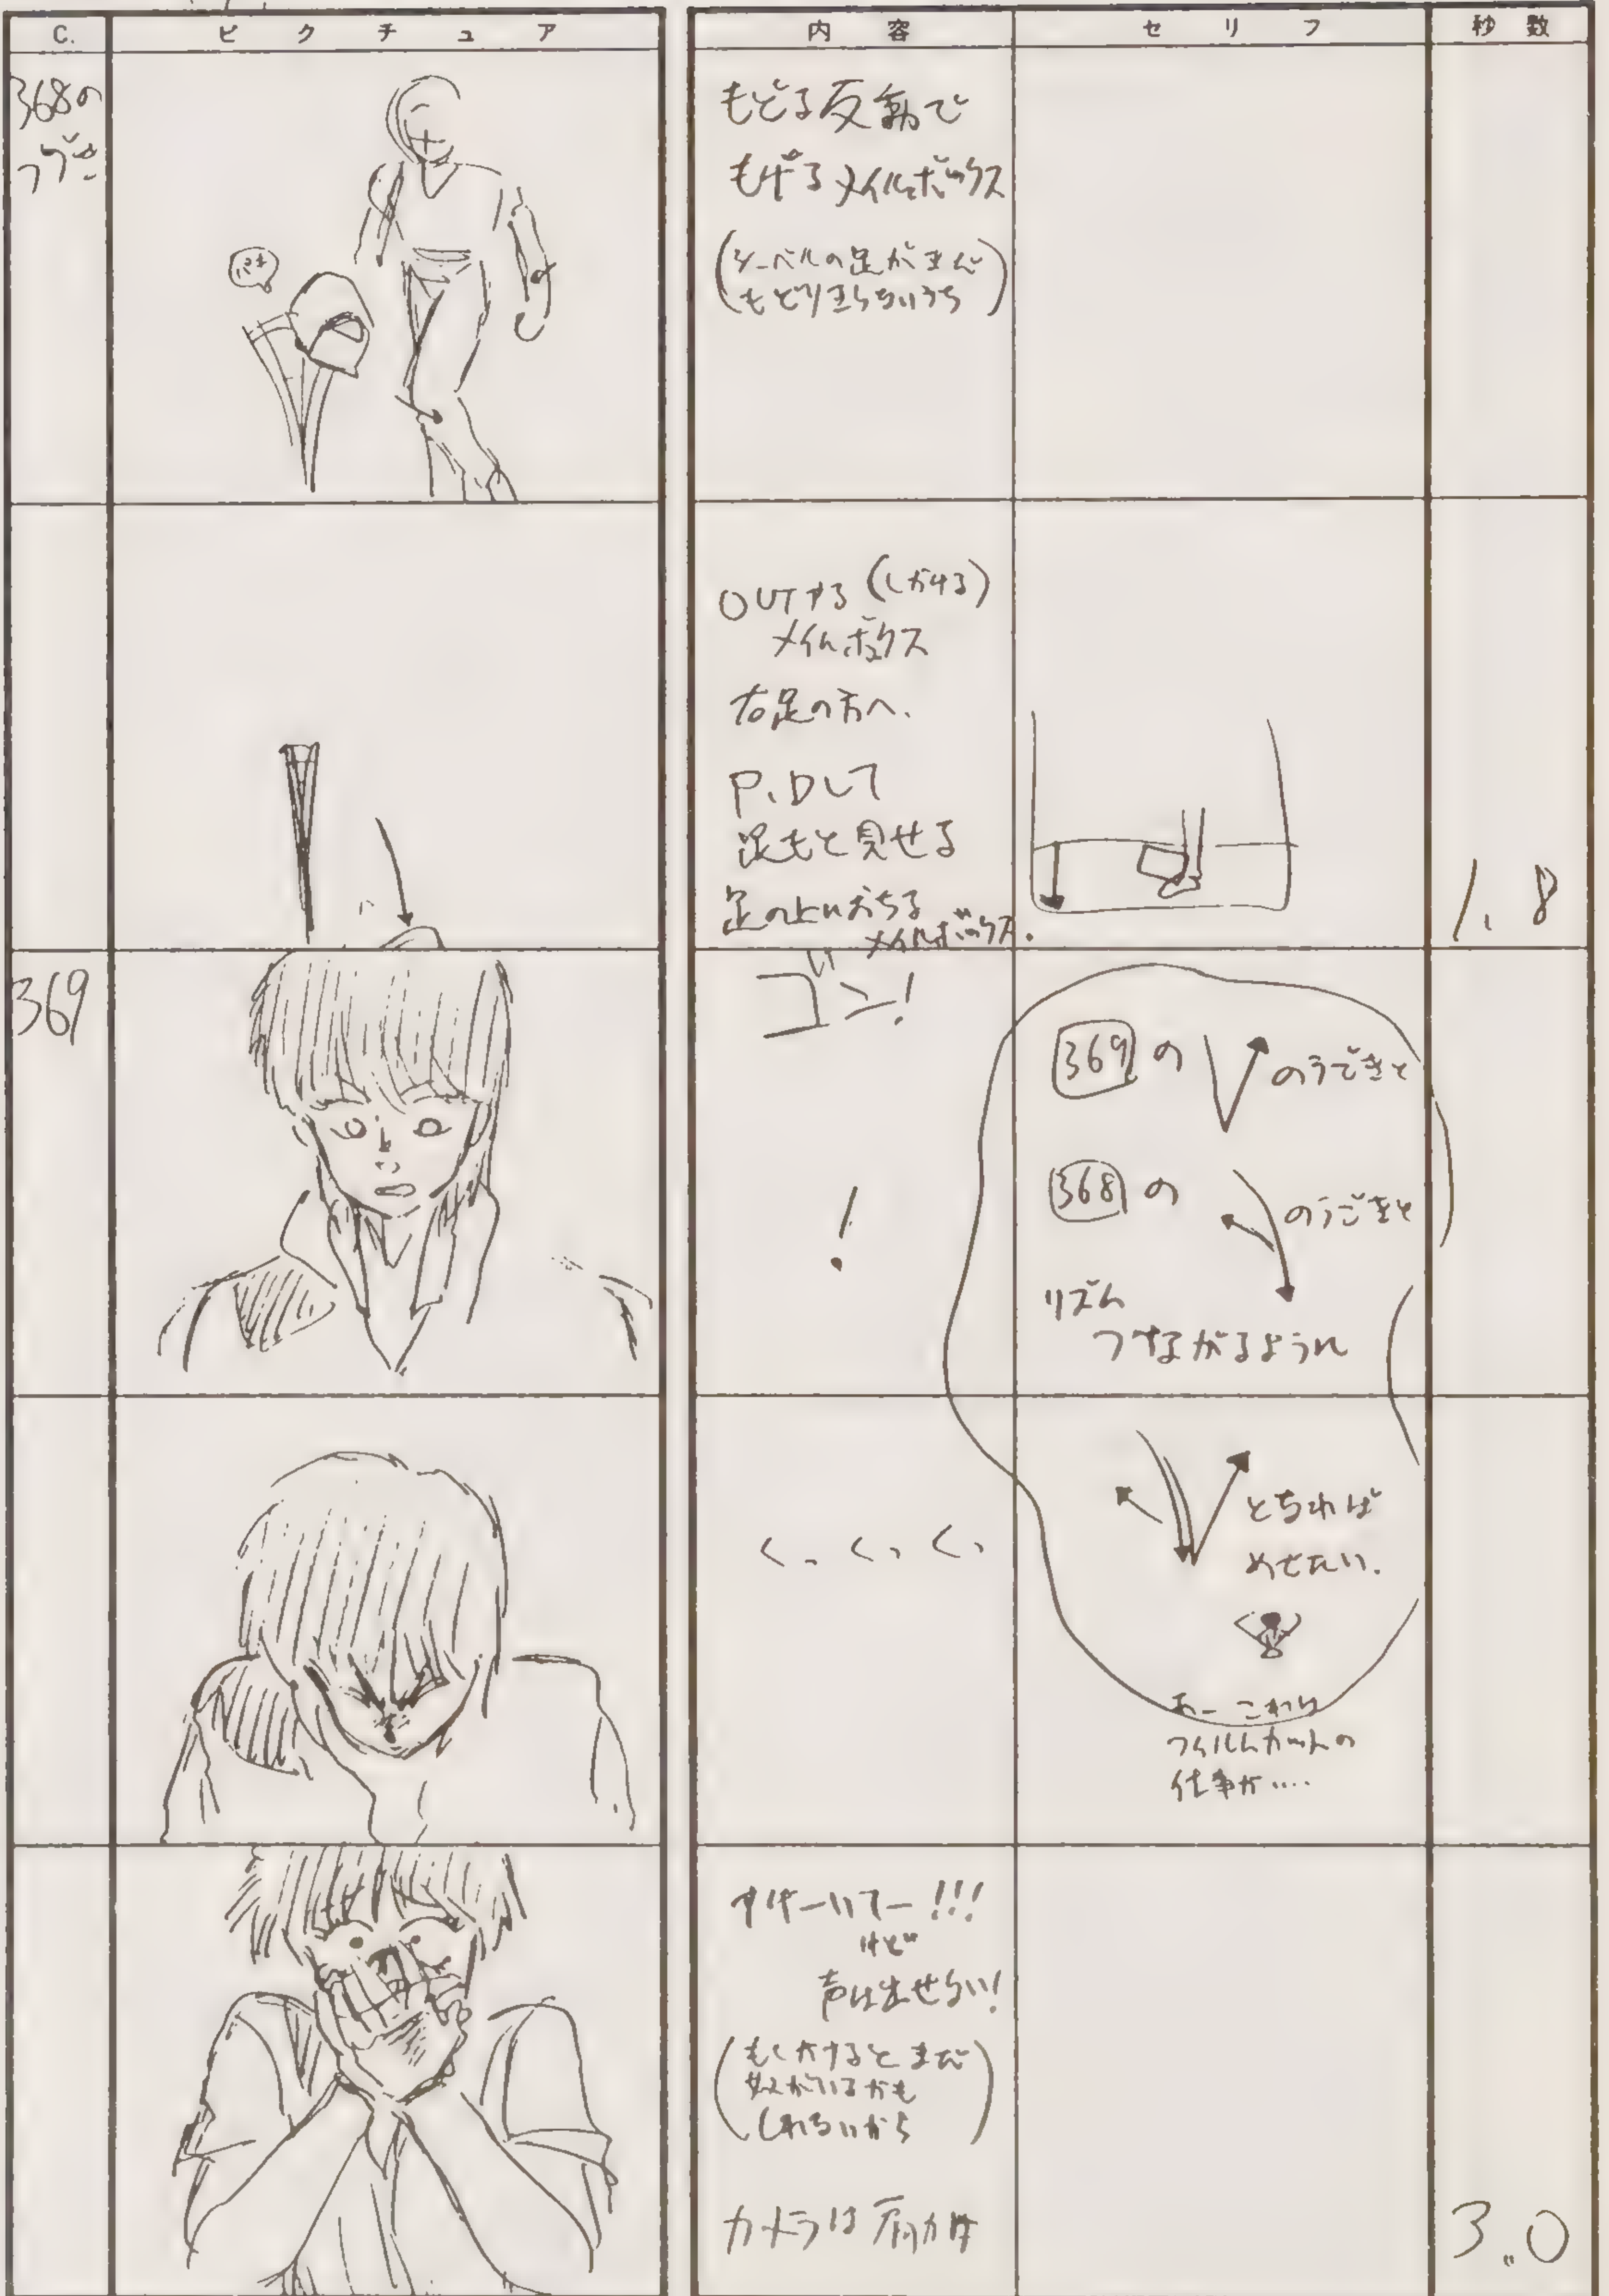 C.
ピクチュア
内容
セリフ
秒数
368の
つづき
もどる反動で
もげるメイルボックス
もどりきらないうち
OUTする(しかける)
メイルボックス
右足の方へ、
P.Dして
足もと見せる
足の上におちる
メイルボックス.
1.8
369
ゴン!
!
369の
のうごきと
368の
のうごきと
リズム
つながるように
く、く、く、
となれば
めでたい.
おーこわい
フィルムカットの
仕事が....
すげーいてー!!!
けど
声は出せない!
もしかするとまだ
奴がいるかも
しれないから
カメラは肩かけ
3.0